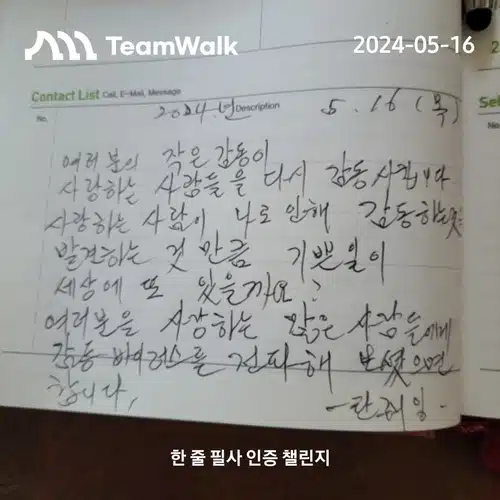 TeamWalk
2024-05-16
Contact List Call, E-Mail, Message
No.
Description
2024.년 5.16(목)
여러분의 작은 감동이
사랑하는 사람들을 다시 감동시킵니다
사랑하는 사람이 나로 인해 감동하는 것을
발견하는 것 만큼 기쁜일이
세상에 또 있을까요?
여러분을 사랑하는 많은 사람들에게
감동 바이러스를 전파해 보셨으면
합니다,
한 줄 필사 인증 챌린지